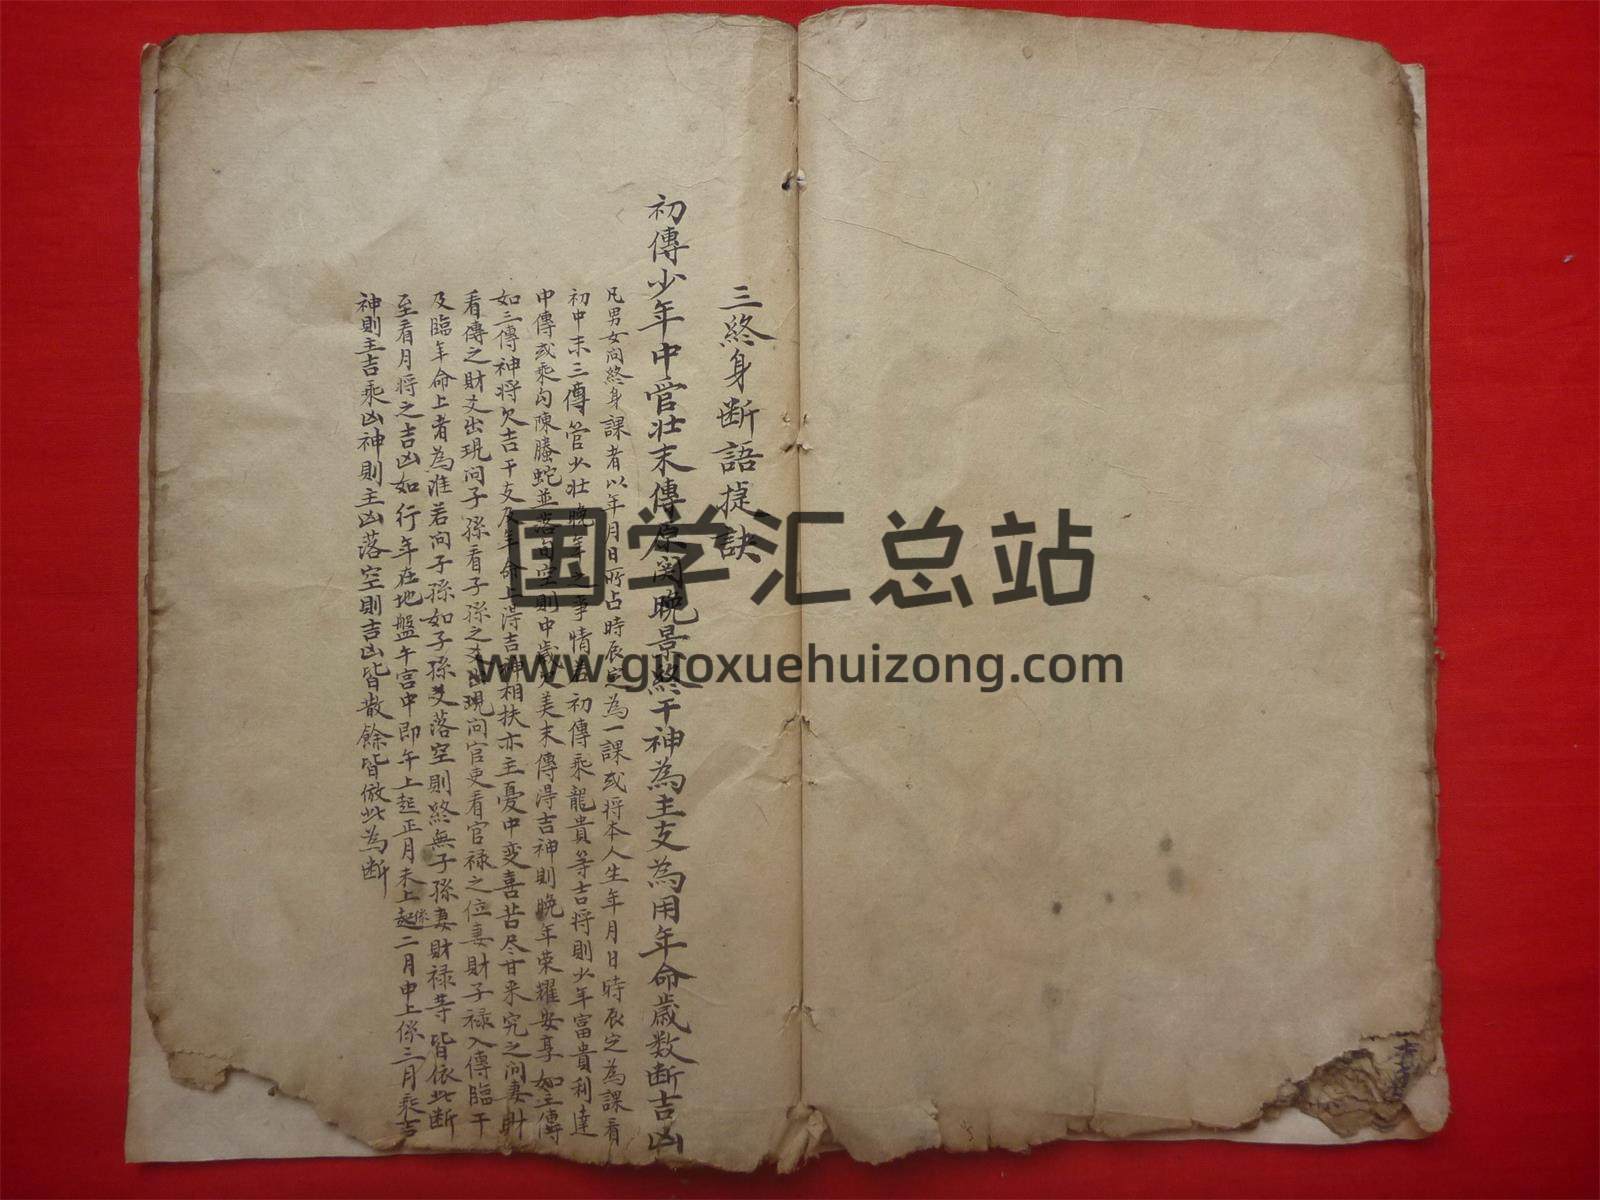 三終身断語提訣
初傳少年中管壮末傳原関晚景終干神為主支為用年命歳数断吉凶
凡男女问終身課者以年月日所占時辰定為一課或将本人生年月日時辰定為課看
初中末三傳管少壮晚年之事情若初傳乘龍貴等吉将則少年富貴利達
中傳或乘勾陳螣蛇並落旬空則中歲欠美末傳淂吉神則晚年荣耀安享如三傳
如三傳神将欠吉干支及年命上淂吉神相扶亦主憂中变喜苦尽甘来究之问妻財
看傳之財爻出現问子孫看子孫之爻出現问官更看官禄之位妻財子禄入傳臨干
及臨年命上者為准若问子孫如子孫爻落空則終無子孫妻財禄等皆依此断
至看月将之吉凶如行年在地盤午宫中即午上起正月未上起二月申上係三月乘吉
係
神則主吉乘凶神則主凶落空則吉凶皆散餘皆倣此為断
国学汇总站
www.guoxuehuizong.com